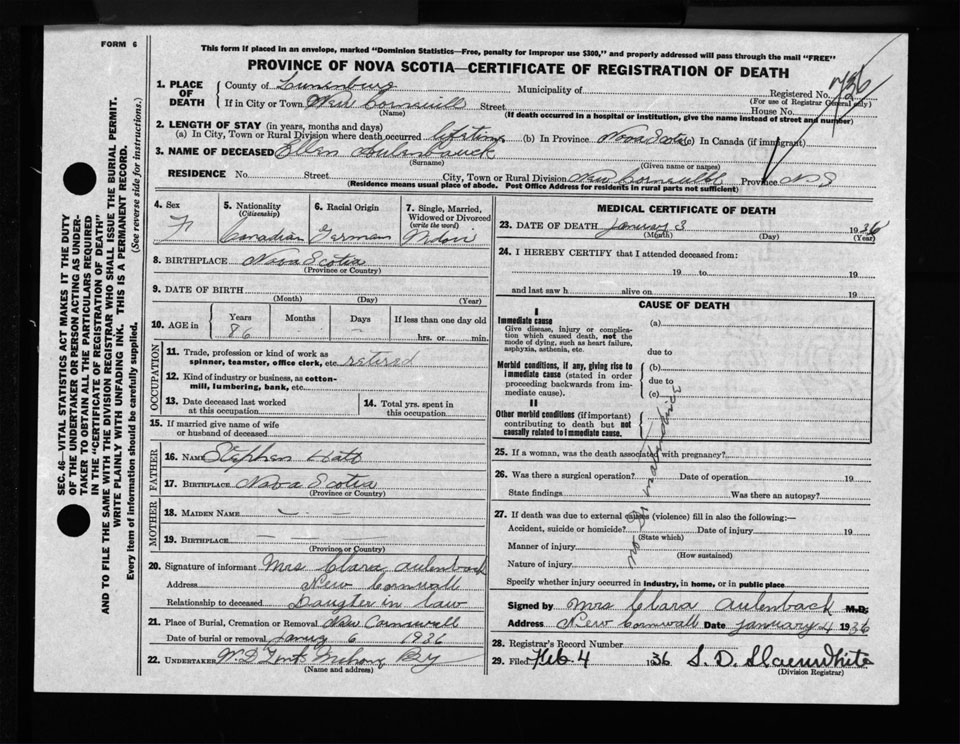 FORM 6
This form if placed in an envelope, marked "Dominion Statistics—Free, penalty for improper use $300," and properly addressed will pass through the mail "FREE"
PROVINCE OF NOVA SCOTIA—CERTIFICATE OF REGISTRATION OF DEATH
1. PLACE OF DEATH
County of Lunenburg Municipality of Registered No.
(For use of Registrar General only)
If in City or Town New Cornwall Street House No.
(Name) (If death occurred in a hospital or institution, give the name instead of street and number)
2. LENGTH OF STAY (in years, months and days)
(a) In City, Town or Rural Division where death occurred lifetime (b) In Province Nova Scotia (c) In Canada (if immigrant)
3. NAME OF DECEASED Ellen
(Surname) (Given name or names)
RESIDENCE No. Street City, Town or Rural Division New Cornwall Province N S
(Residence means usual place of abode. Post Office Address for residents in rural parts not sufficient)
4. Sex 5. Nationality 6. Racial Origin 7. Single, Married,
(Citizenship) Widowed or Divorced
(write the word)
F Canadian German
8. BIRTHPLACE Nova Scotia
(Province or Country)
9. DATE OF BIRTH
(Month) (Day) (Year)
10. AGE in Years Months Days If less than one day old
86 – hrs. or min.
OCCUPATION
11. Trade, profession or kind of work as
spinner, teamster, office clerk, etc. retired
12. Kind of industry or business, as cotton-
mill, lumbering, bank, etc.
13. Date deceased last worked
at this occupation
14. Total yrs. spent in
this occupation
15. If married give name of wife
or husband of deceased
FATHER
16. Name Stephen
17. Birthplace Nova Scotia
(Province or Country)
MOTHER
18. Maiden Name — —
19. Birthplace — —
(Province or Country)
20. Signature of informant Mrs Clara Aulenback
Address New Cornwall
Relationship to deceased Daugter in law
21. Place of Burial, Cremation or Removal New Cornwall
Date of burial or removal 6 1936
22. Undertaker
(Name and address)
MEDICAL CERTIFICATE OF DEATH
23. DATE OF DEATH January 3 1936
(Month) (Day) (Year)
24. I HEREBY CERTIFY that I attended deceased from:
19 to 19
and last saw h alive on 19
CAUSE OF DEATH
I
Immediate cause (a)
Give disease, injury or complica-
tion which caused death, not the
mode of dying, such as heart failure,
asphyxia, asthenia, etc.
due to
Morbid conditions, if any, giving rise to (b)
immediate cause (stated in order due to
proceeding backwards from im-
mediate cause). (c)
II
Other morbid conditions (if important)
contributing to death but not
causally related to immediate cause.
25. If a woman, was the death associated with pregnancy?
26. Was there a surgical operation? Date of operation 19
State findings Was there an autopsy?
27. If death was due to external causes (violence) fill in also the following:—
Accident, suicide or homicide? Date of injury 19
(State which)
Manner of injury
(How sustained)
Nature of injury
Specify whether injury occurred in industry, in home, or in public place
no Dr in attendance
Signed by Mrs Clara Aulenback M.D.
Address New Cornwall Date January 4 1936
28. Registrar's Record Number
29. Filed Feb. 4 1936 S. D.
(Division Registrar)
SEC. 46—VITAL STATISTICS ACT MAKES IT THE DUTY
OF THE UNDERTAKER OR PERSON ACTING AS UNDER-
TAKER TO OBTAIN ALL THE PARTICULARS REQUIRED
IN THE "CERTIFICATE OF REGISTRATION OF DEATH"
AND TO FILE THE SAME WITH THE DIVISION REGISTRAR WHO SHALL ISSUE THE BURIAL PERMIT.
WRITE PLAINLY WITH UNFADING INK. THIS IS A PERMANENT RECORD.
Every item of information should be carefully supplied. (See reverse side for instructions.)